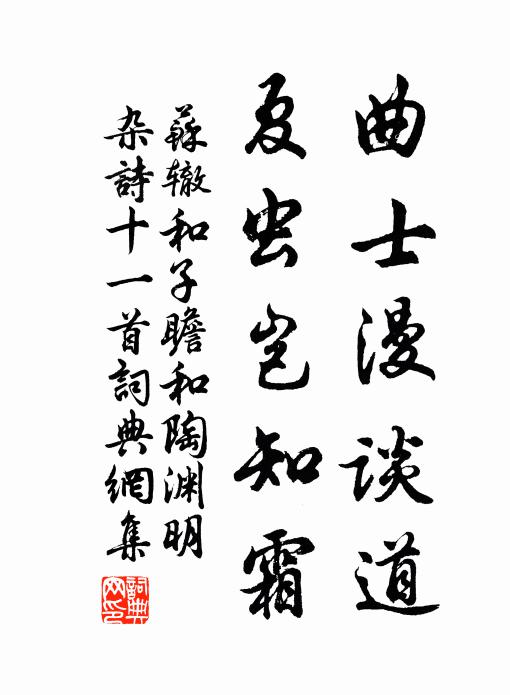 曲士漫谈道
夏虫岂知霜
蘇辙和子瞻和陶渊明
杂詩十一首詞典網集
詞典
网印